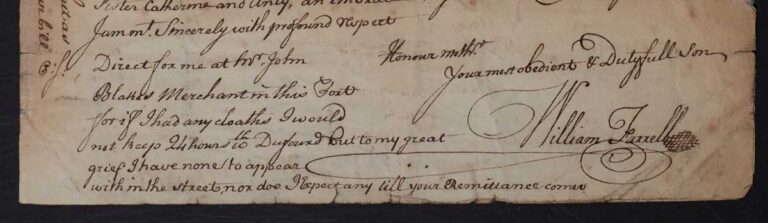 Sister Catherine and Unly, an embrace
I am mt. Sincerely with profound respect
Honour
Your most obedient & Dutyfull Son
William Farrell
Direct for me at Mr. John
Blakes Merchant in this Port
for if I had any cloaths I would
not keep 24 hours to but to my great
grief I have none to appear
with in the street, nor doe I Expect any till your Remittance comes